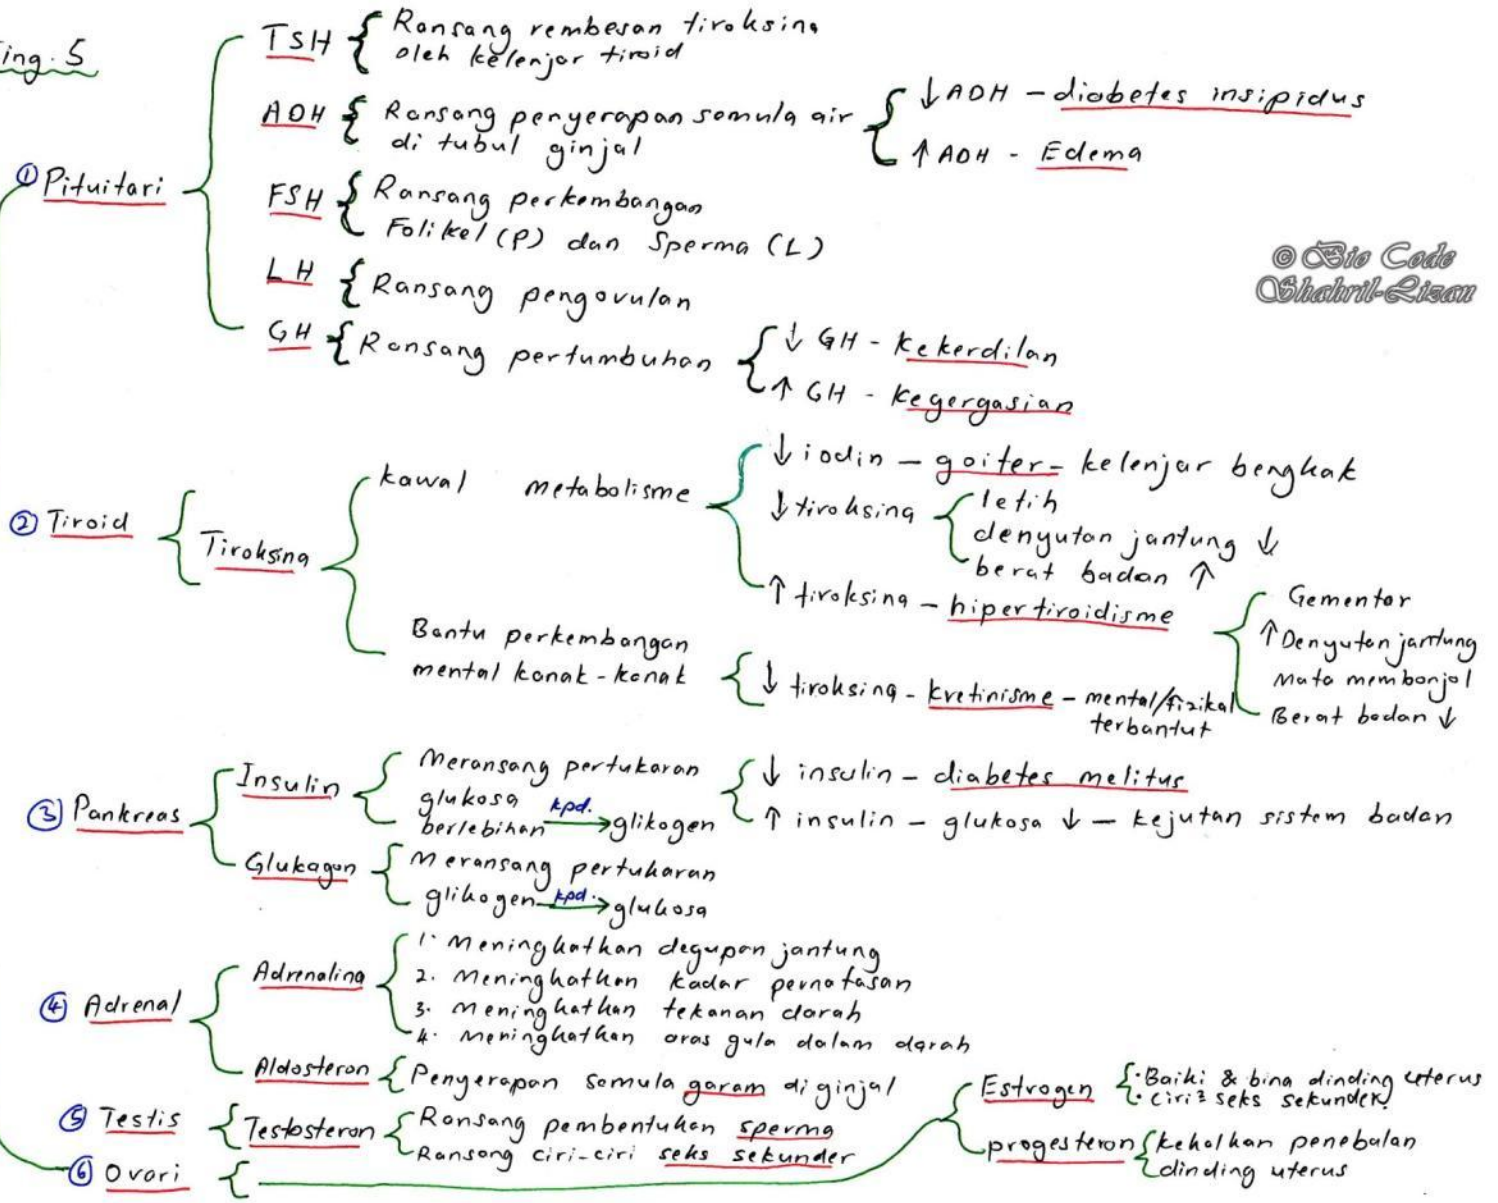 ing. 5
① Pituitari
TSH { Ransang rembesan tiroksina
oleh kelenjar tiroid
ADH { Ransang penyerapan semula air
di tubul ginjal
↓ ADH - diabetes insipidus
↑ ADH - Edema
FSH { Ransang perkembangan
Folikel (P) dan Sperma (L)
LH { Ransang pengovulan
GH { Ransang pertumbuhan
↓ GH - kekerdilan
↑ GH - kegergasian
© Bio Code
Shahril-Lizan
② Tiroid
Tiroksina
kawal metabolisme
↓ iodin - goiter - kelenjar bengkak
↓ tiroksing
letih
denyutan jantung ↓
berat badan ↑
↑ tiroksina - hipertiroidisme
Gementar
↑ Denyutan jantung
Mata membonjol
Berat badan ↓
Bantu perkembangan
mental kanak-kanak
↓ tiroksing - kretinisme - mental/fizikal
terbantut
③ Pankreas
Insulin
Meransang pertukaran
glukosa
berlebihan kpd. → glikogen
↓ insulin - diabetes melitus
↑ insulin - glukosa ↓ - kejutan sistem badan
Glukagon
Meransang pertukaran
glikogen kpd. → glukosa
④ Adrenal
Adrenalina
1. Meningkatkan degupan jantung
2. Meningkatkan kadar pernafasan
3. Meningkatkan tekanan darah
4. Meningkatkan aras gula dalam darah
Aldosteron { Penyerapan semula garam di ginjal
⑤ Testis { Testosteron
Ransang pembentukan sperma
Ransang ciri-ciri seks sekunder
⑥ Ovari {
Estrogen
· Baiki & bina dinding uterus
· ciri² seks sekunder.
progesteron
kekalkan penebalan
dinding uterus